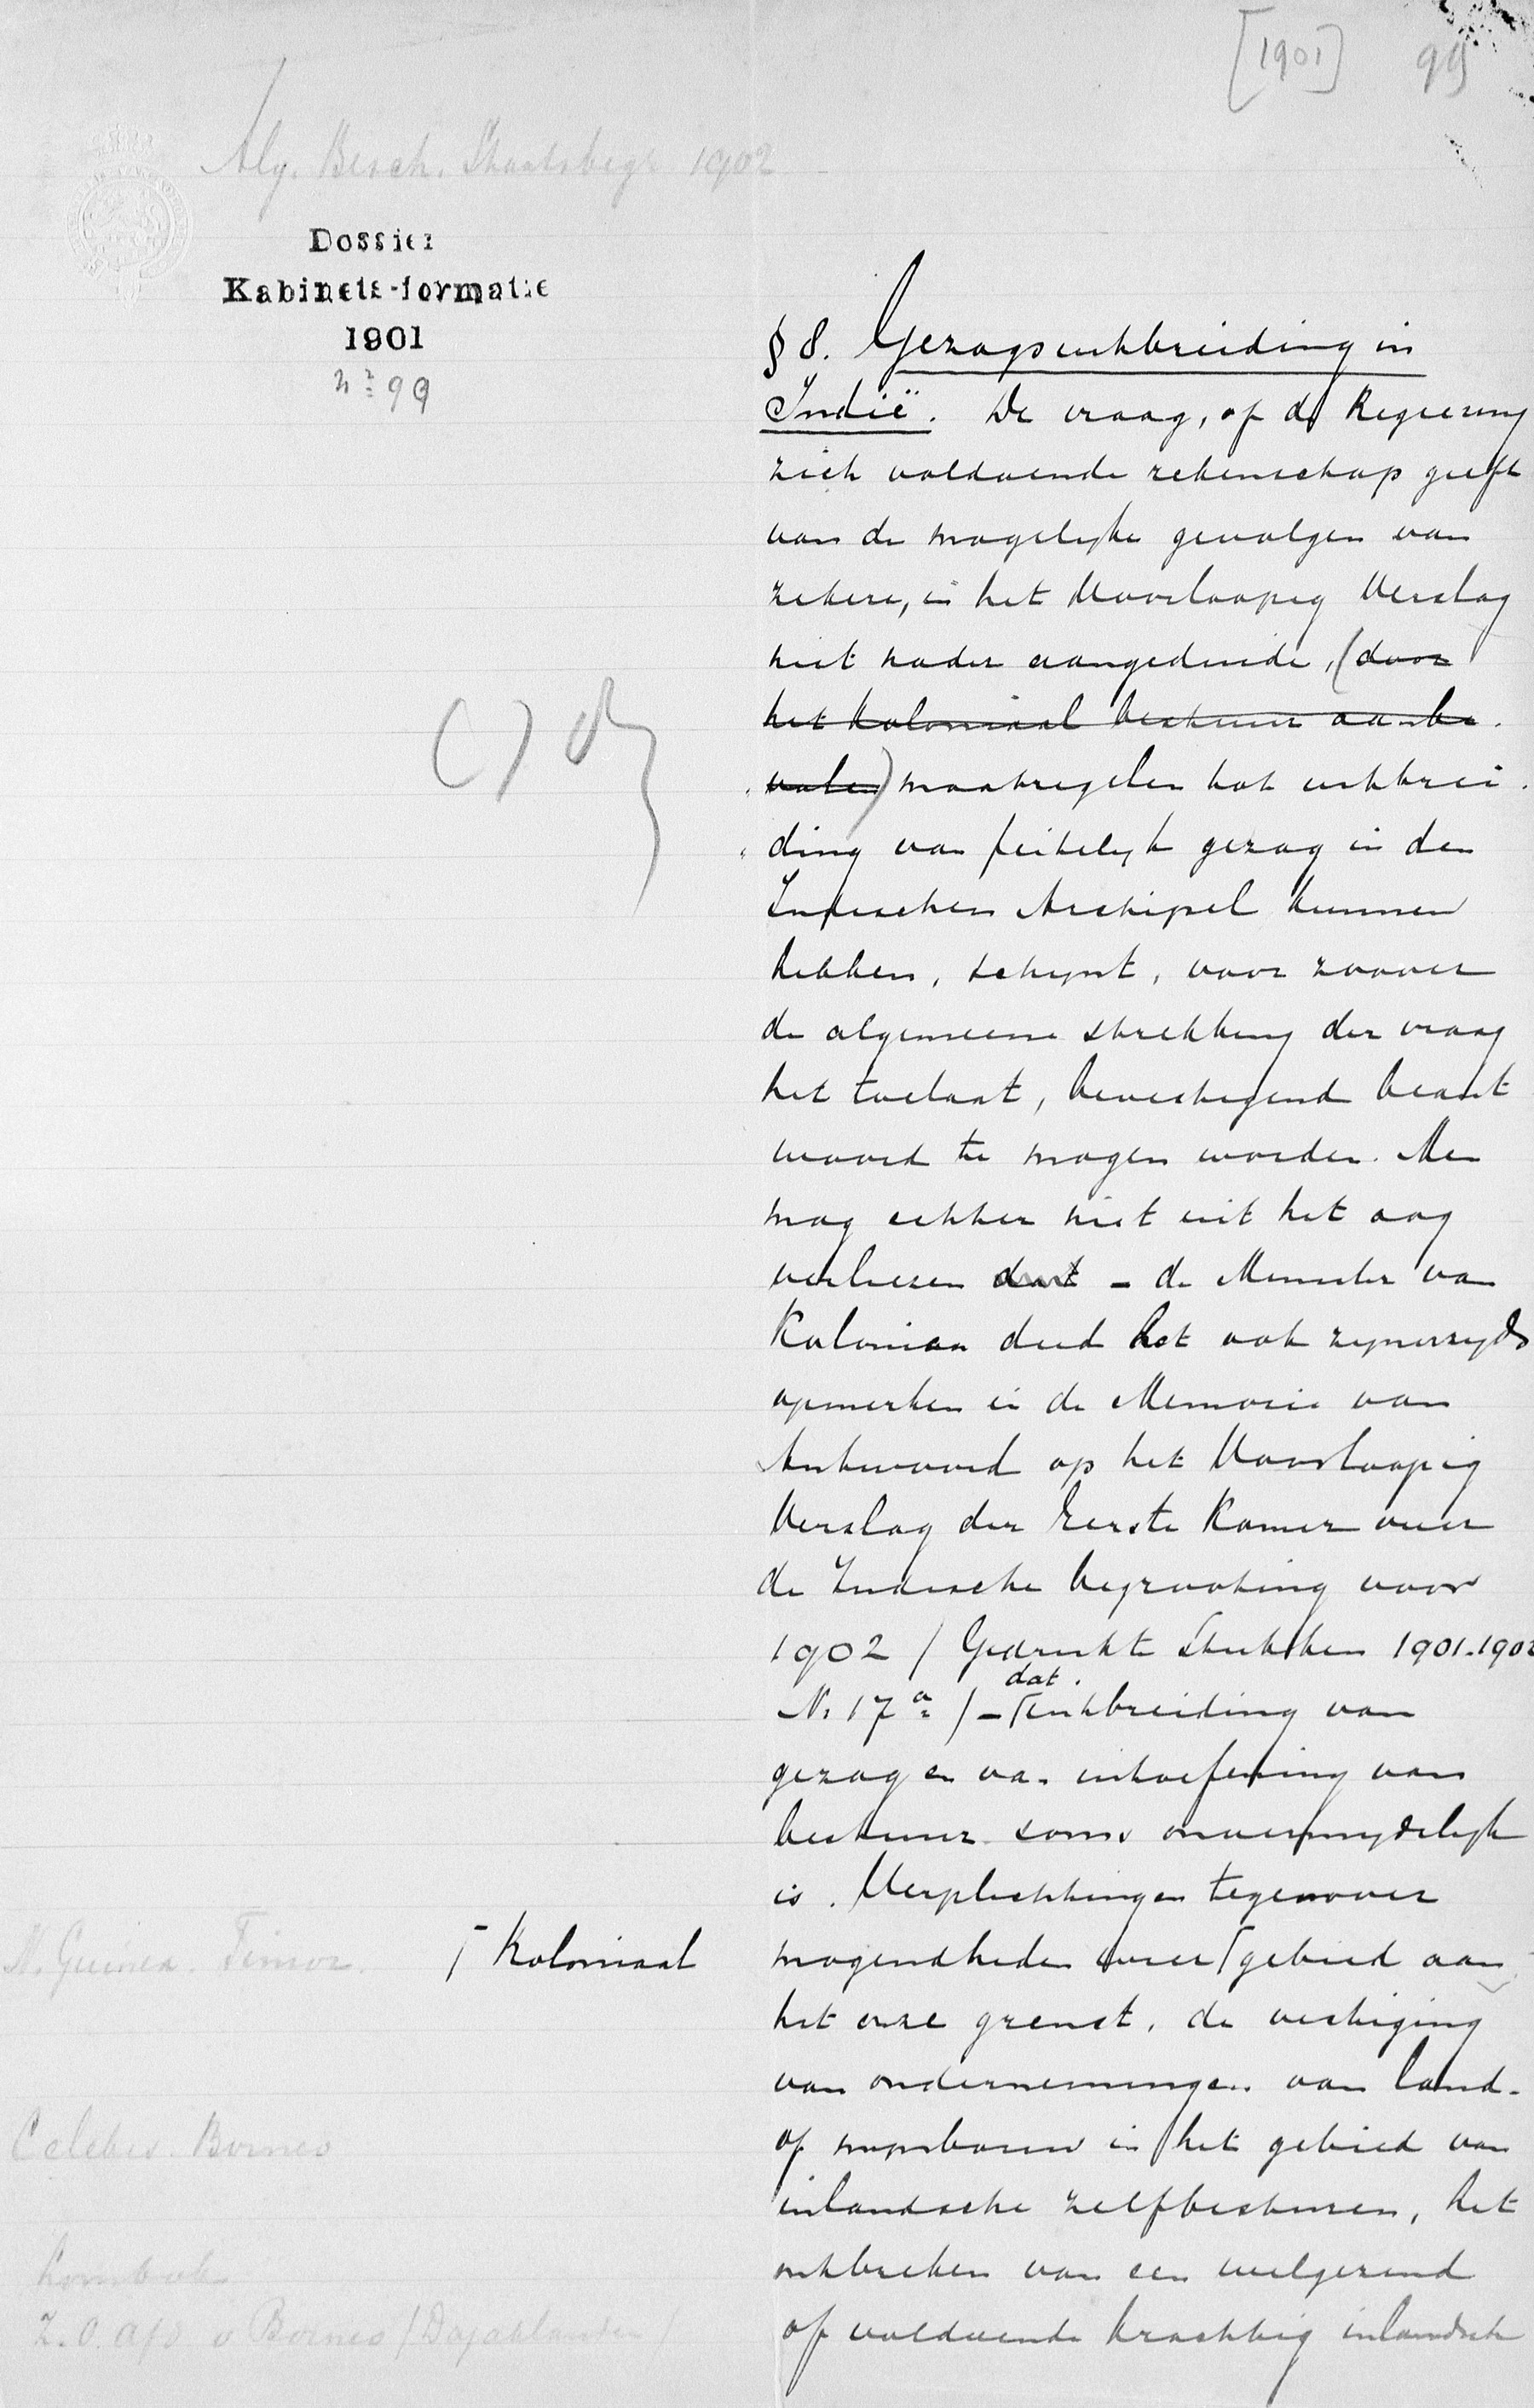 [1901] 99
Alg. Besch. Staatsbegr 1902
Dossier
Kabinets-formatie
1901
No 99
§ 8. Gezagsuitbreiding in
Indië. De vraag, of de Regeering
zich voldoende rekenschap geeft
van de mogelijke gevolgen van
zekere, in het Voorloopig Verslag
niet nader aangeduide, (door
het koloniaal bestuur aanbe-
volen) maatregelen tot uitbrei-
ding van feitelijk gezag in den
Indischen Archipel kunnen
hebben, schijnt, voor zoover
de algemeene strekking der vraag
het toelaat, bevestigend beant
woord te mogen worden. Men
mag echter niet uit het oog
verliezen dat - de Minister van
Koloniën deed het ook zijnerzijds
opmerken in de Memorie van
Antwoord op het Voorloopig
Verslag der Eerste Kamer over
de Indische begrooting voor
1902 / Gedrukte Stukken 1901-1902
No 17a / - dat uitbreiding van
gezag en van uitoefening van
bestuur soms onvermijdelijk
is. Verplichtingen tegenover
mogendheden wier ⌈ gebied aan
⌈ Koloniaal
N. Guinea. Timor.
het onze grenst, de vestiging
van ondernemingen van land-
of mijnbouw in het gebied van
Celebes. Borneo
inlandsche zelfbesturen, het
ontbreken van een welgezind
Lombok
of voldoende krachtig inlandsch
Z. O. afd v Borneo / Dajaklanden /